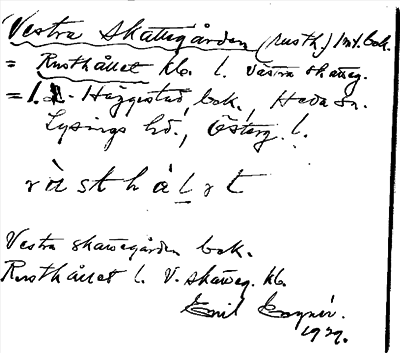 Vestra Skattegården (rusth.) Int. bok.
= Rusthållet kb. l. västra skatteg.
= 1. Häggestad, bok., Heda sn.
Lysings hd., Österg. l.
rùsthålət
Vestra skattegården bok.
Rusthållet l. V. skatteg. kb.
Emil
1929.